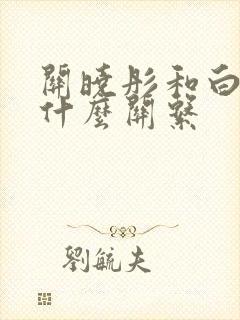 關曉彤和白
什麼關繫
劉毓夫